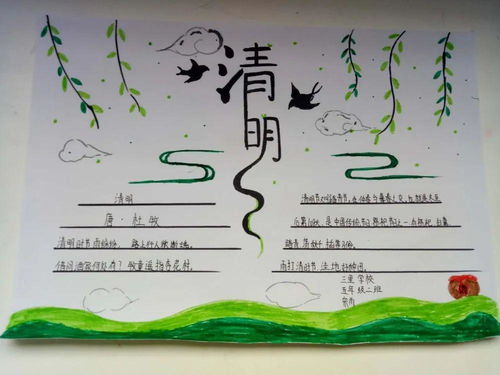 清明
清明
唐·杜牧
清明时节雨纷纷，路上行人欲断魂。
借问酒家何处有？牧童遥指杏花村。
清明节又叫踏青节，在仲春与暮春之交，也就是冬至
后第108天。是中国传统节日，祭祀节日之一
踏青、荡秋千、插柳
雨打清明节，洼地好种田。
学校
五年级二班